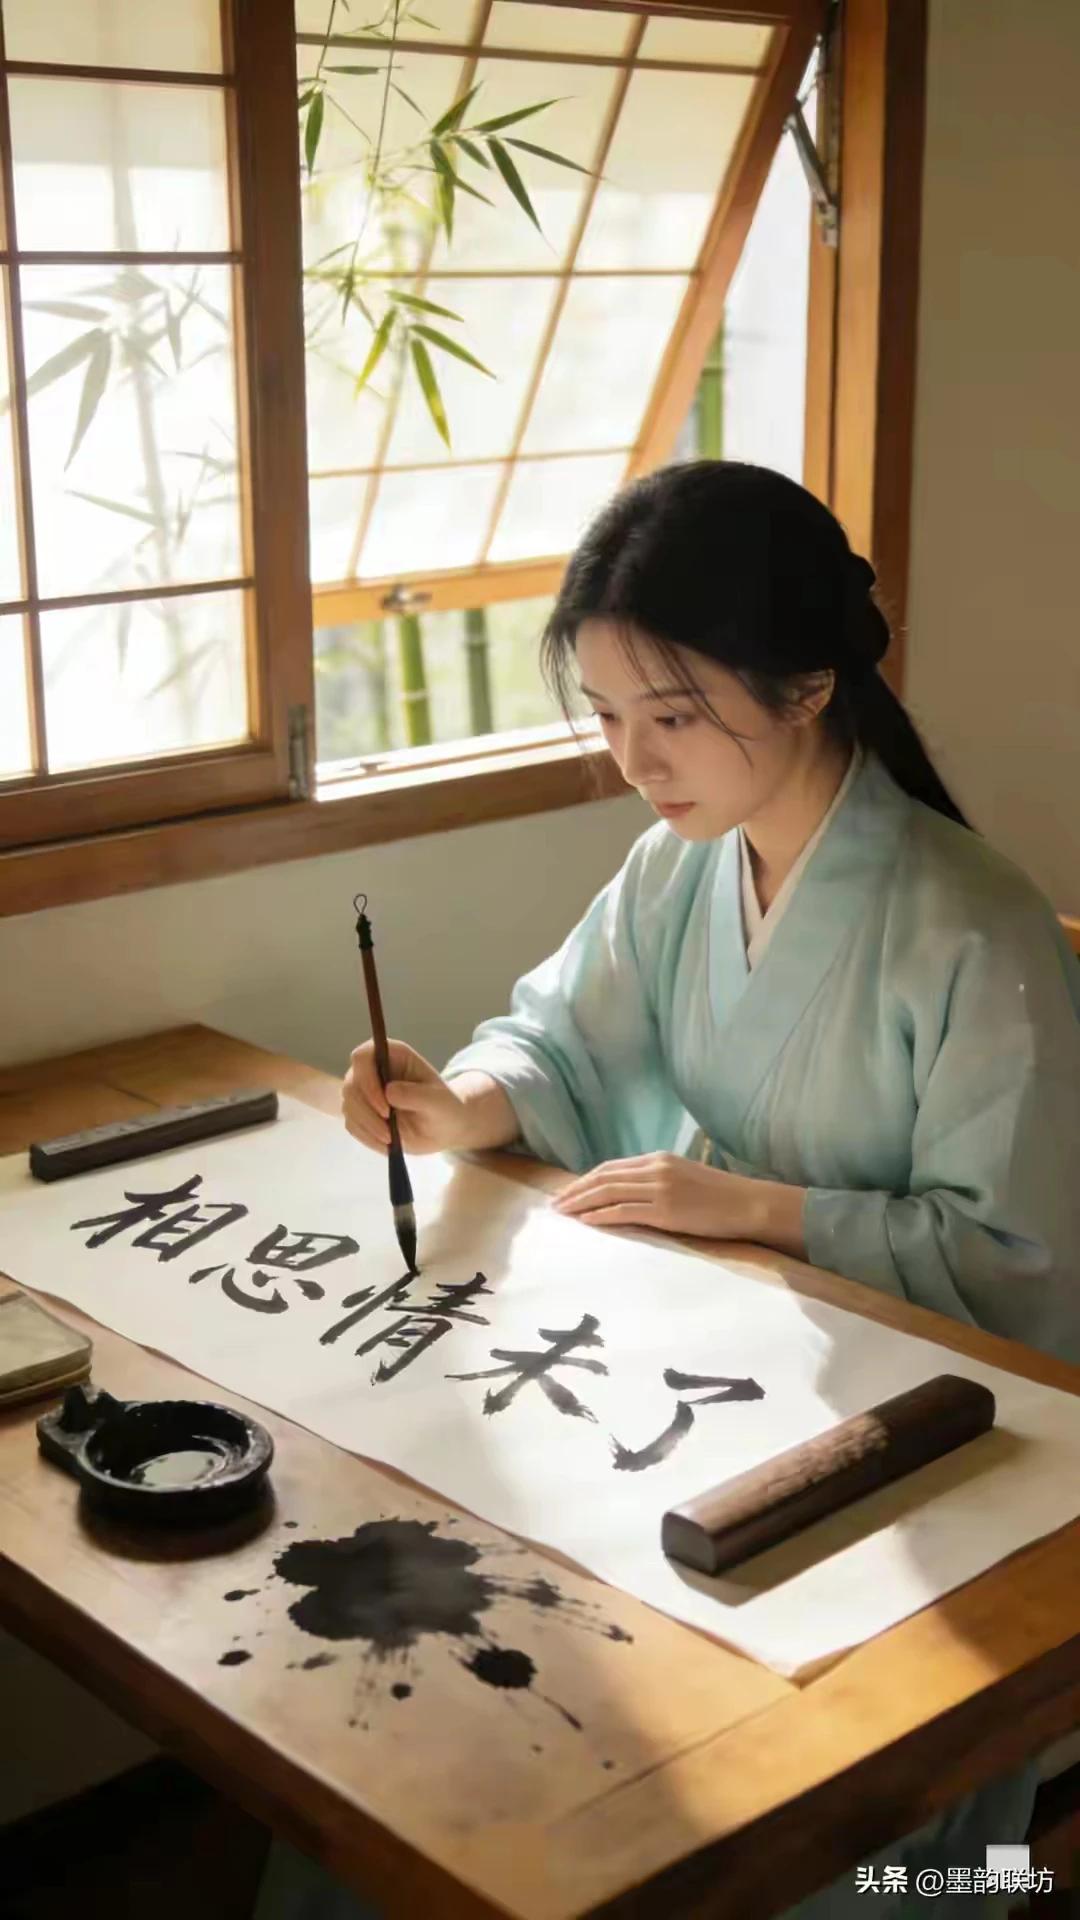 相思情未了
头条 @墨韵联坊